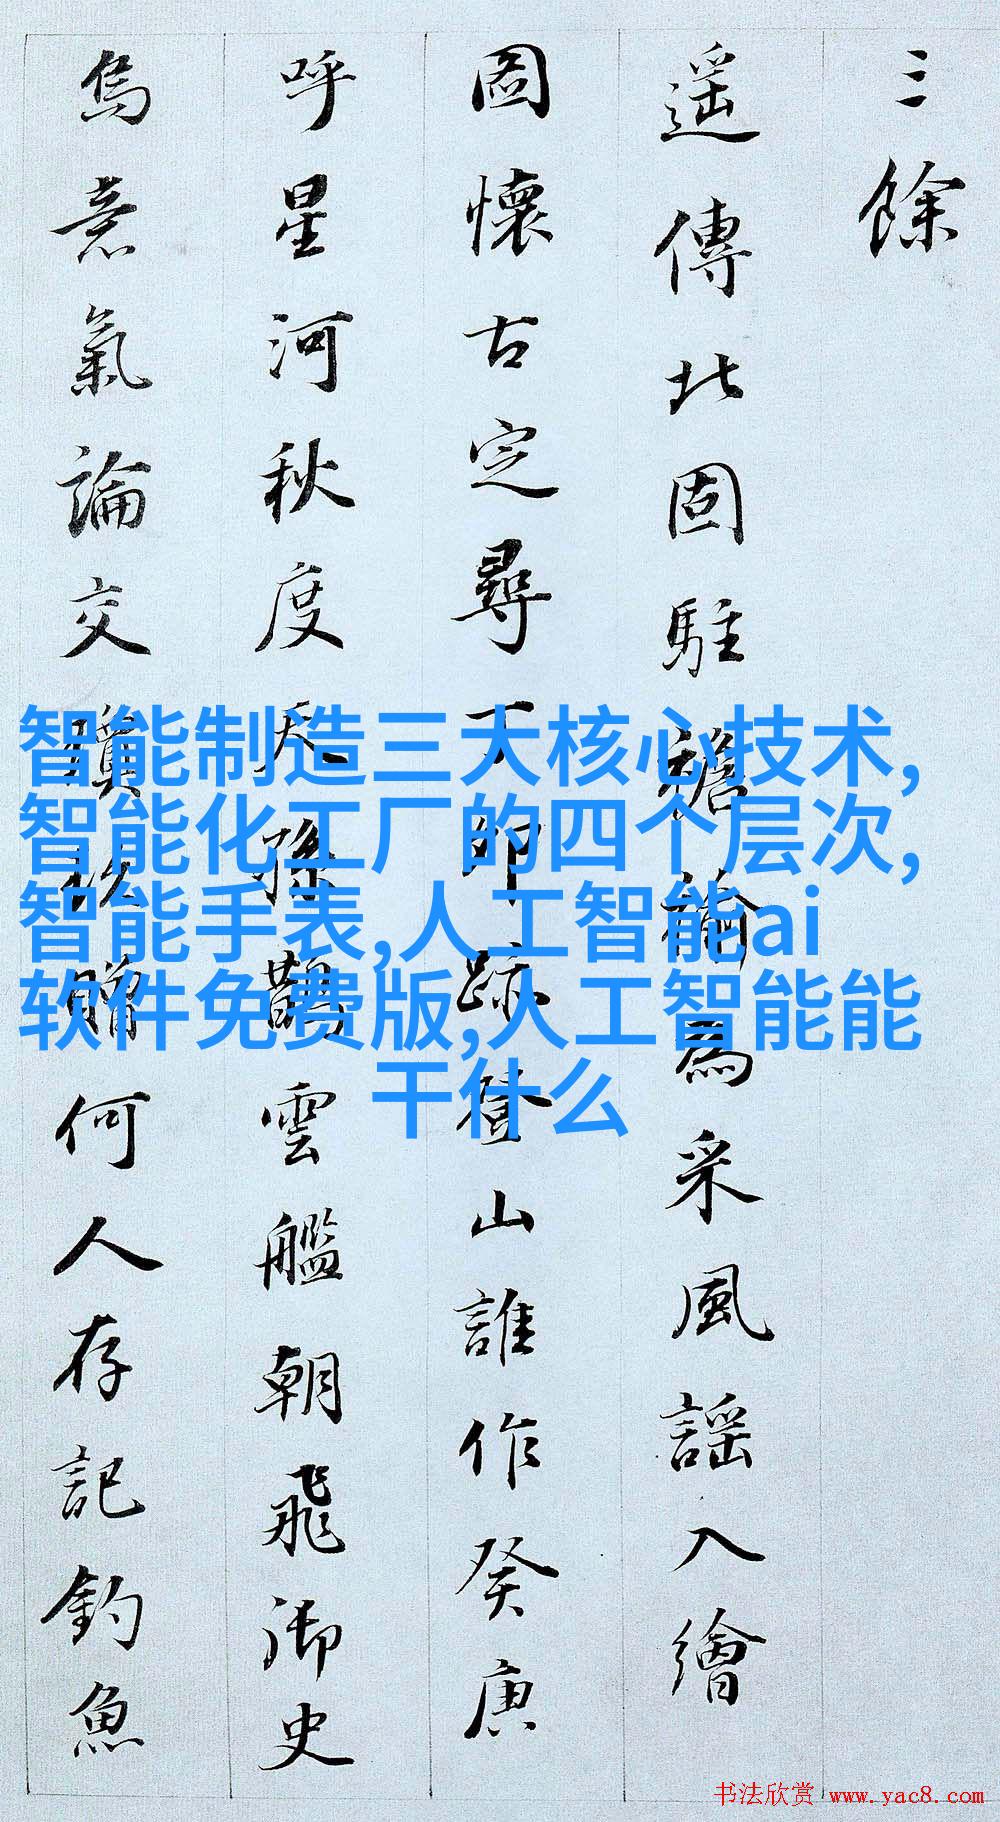 三餘
遥傳北固駐襜褕爲采風謡入繪
圖懷古定尋丁卯跡登山誰作癸庚
呼星河秋度天孫鵲雲艦朝飛御史
烏意氣論交獧紵贈何人存記釣魚
智能制造三大核心技术,
智能化工厂的四个层次,
智能手表,人工智能ai
软件免费版,人工智能能
干什么
书法欣赏 www.yac8.com